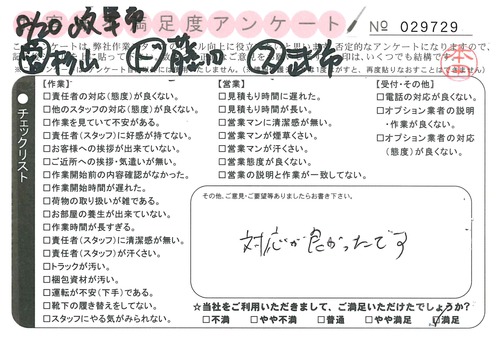 8/20 岐阜市
お客様満足度アンケート
No 029729
㊞杉山 ㊁藤田 ㋐武市
本
チェックリスト
【作業】
□責任者の対応(態度)が良くない。
□他のスタッフの対応(態度)が良くない。
□作業を見ていて不安がある。
□責任者(スタッフ)に好感が持てない。
□お客様への挨拶が出来ていない。
□ご近所への挨拶・気遣いが無い。
□作業開始前の内容確認がなかった。
□作業開始時間が遅れた。
□荷物の取り扱いが雑である。
□お部屋の養生が出来ていない。
□作業時間が長すぎる。
□責任者(スタッフ)に清潔感が無い。
□責任者(スタッフ)が汗くさい。
□トラックが汚い。
□梱包資材が汚い。
□運転が不安(下手)である。
□靴下の履き替えをしてない。
□スタッフにやる気がみられない。
【営業】
□見積もり時間に遅れた。
□見積もり時間が長い。
□営業マンに清潔感が無い。
□営業マンが煙草くさい。
□営業マンが汗くさい。
□営業態度が良くない。
□営業の説明と作業が一致してない。
【受付・その他】
□電話の対応が良くない。
□オプション業者の説明
・作業が良くない。
□オプション業者の対応
(態度)が良くない。
その他、ご意見・ご要望等ありましたらお書き下さい。
対応が良かったです
☆当社をご利用いただきまして、ご満足いただけたでしょうか?
□不満 □やや不満 □普通 □やや満足 □満足